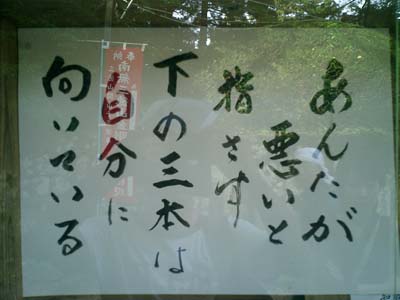 あんたが
悪いと
指さす
下の三本は
自分に
向いている
奉納
南無